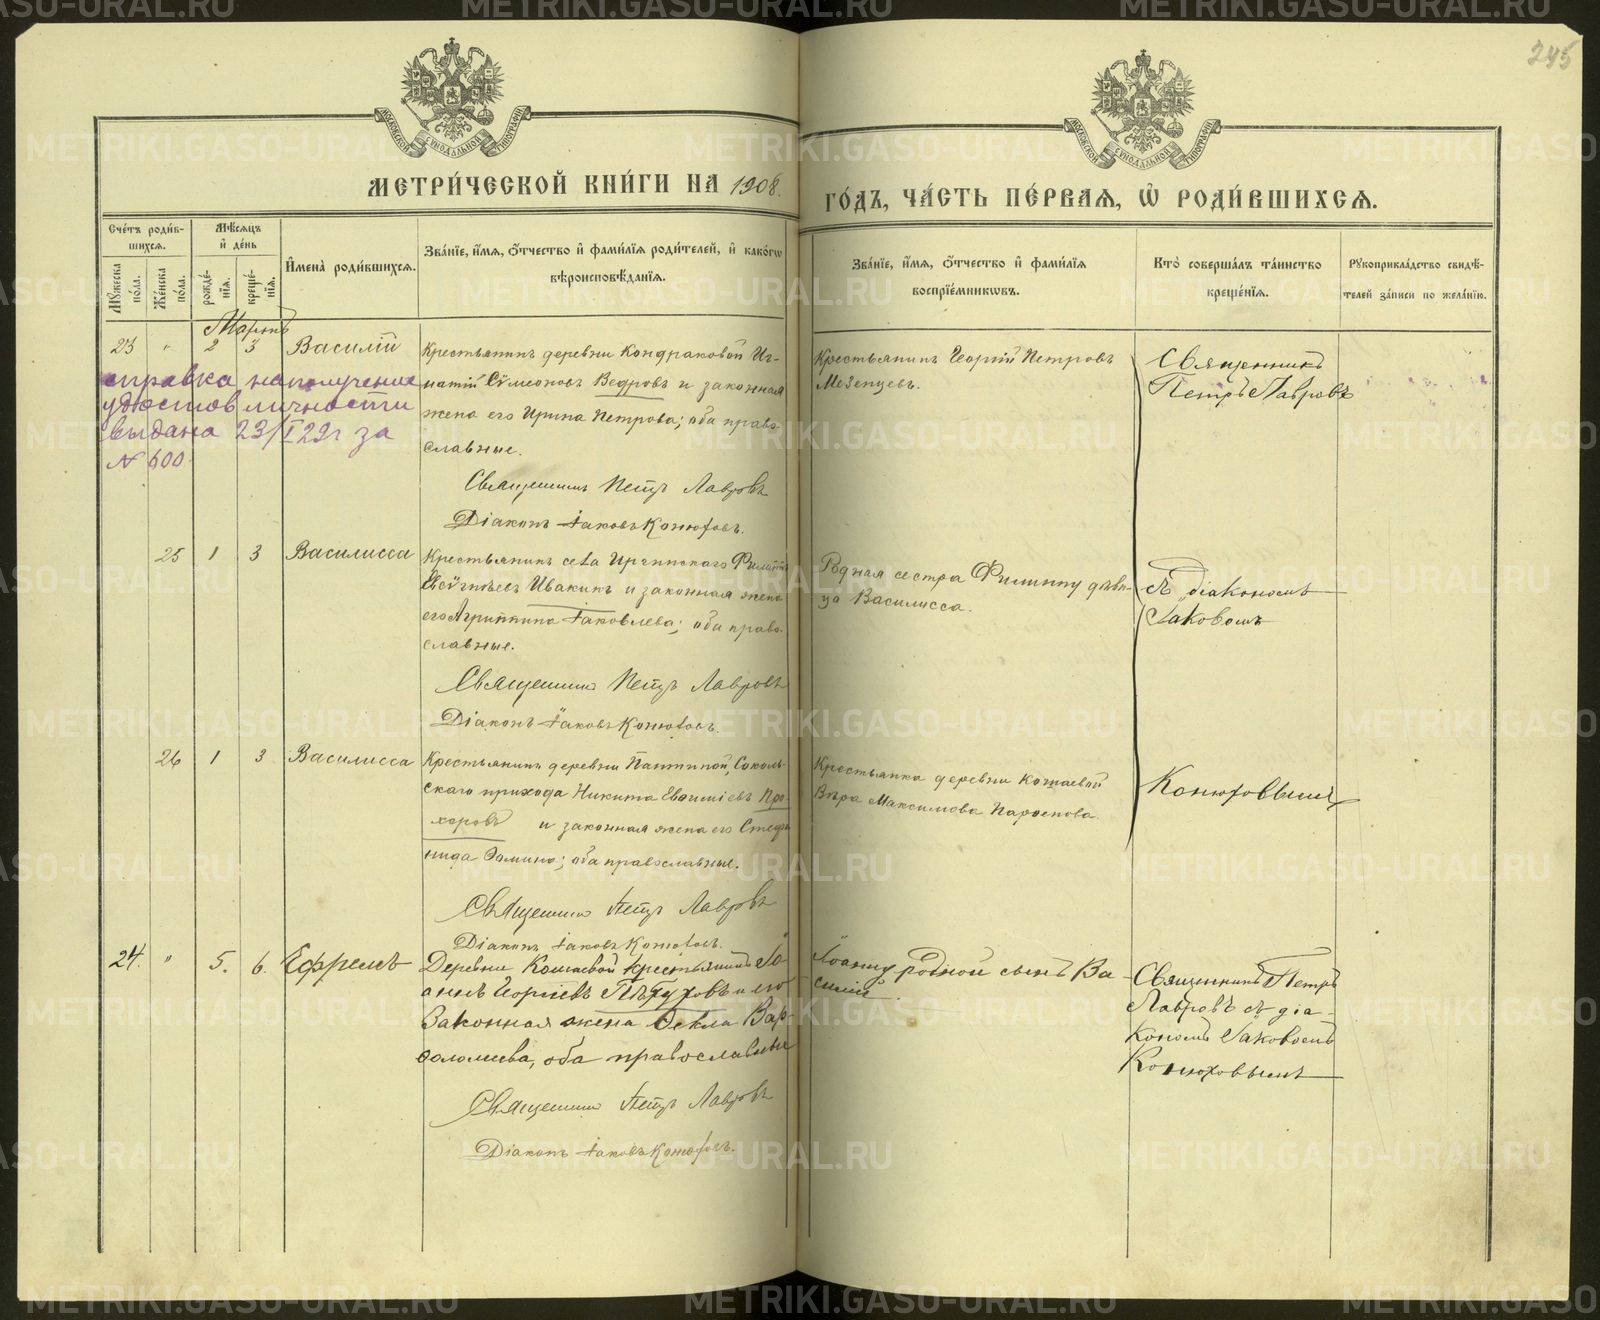 245
МОСКОВСКОЙ СУНОДАЛЬНОЙ ТИПОГРАФІИ
МОСКОВСКОЙ СУНОДАЛЬНОЙ ТИПОГРАФІИ
МЕТРИ́ЧЕСКОЙ КНИ́ГИ НА 1908.
ГО́ДЪ, ЧА́СТЬ ПЕ́РВАѦ, Ѽ РОДИ́ВШИХСѦ.
Сче́тъ роди́в-
шихсѧ.
Мꙋ́жеска по́ла.
Же́нска по́ла.
Мѣ́сѧцъ
и҆ де́нь
рожде́-
нїѧ.
креще́-
нїѧ.
И҆мена̀ роди́вшихсѧ.
Зва́нїе, и҆́мѧ, ѻ҆́тчество и҆ фами́лїѧ роди́телей, и҆ како́гѡ
вѣроисповѣ́данїѧ.
Зва́нїе, и҆́мѧ, ѻ҆́тчество и҆ фами́лїѧ
воспрїе́мникѡвъ.
Кто̀ соверша́лъ та́инство
креще́нїѧ.
Рꙋкоприкла́дство свидѣ́-
телей за́писи по жела́нїю.
Мартъ
23 " 2 3 Василій
Крестьянинъ деревни Кондраковой Иг-
натій Сѵмеоновъ Ведровъ и законная
жена его Ирина Петрова; оба право-
славные.
Священникъ Петръ Лавровъ
Діаконъ Іаковъ Конюховъ.
Крестьянинъ Георгій Петровъ
Мезенцевъ.
Священникъ
Петръ Лавровъ
справка на получение
удостов личности
выдана 23/I 29г за
№ 600
25 1 3 Василисса
Крестьянинъ села Иргинскаго Филиппъ
Евсигніевъ Ивакинъ и законная жена
его Агриппина Іаковлева; оба право-
славные.
Священникъ Петръ Лавровъ
Діаконъ Іаковъ Конюховъ.
Родная сестра Филиппу дѣви-
ца Василисса.
съ діакономъ
Іаковомъ
26 1 3 Василисса
Крестьянинъ деревни Пантиной, Соколь-
скаго прихода Никита Евѳиміевъ Про-
хоровъ и законная жена его Стефа-
нида Ѳомина; оба православные.
Священникъ Петръ Лавровъ
Діаконъ Іаковъ Конюховъ.
Крестьянка деревни Кошаевой
Вѣра Максимова
Конюховымъ
24. " 5. 6. Ефремъ
Деревни Кошаевой крестьянинъ Іо-
аннъ Георгіевъ Пѣтуховъ и его
законная жена Ѳекла Вар-
ѳоломеева, оба православные
Священникъ Петръ Лавровъ
Діаконъ Іаковъ Конюховъ.
Іоанну родной сынъ Ва-
силій
Священникъ Петръ
Лавровъ съ діа-
кономъ Іаковомъ
Конюховымъ
METRIKI.GASO-URAL.RU